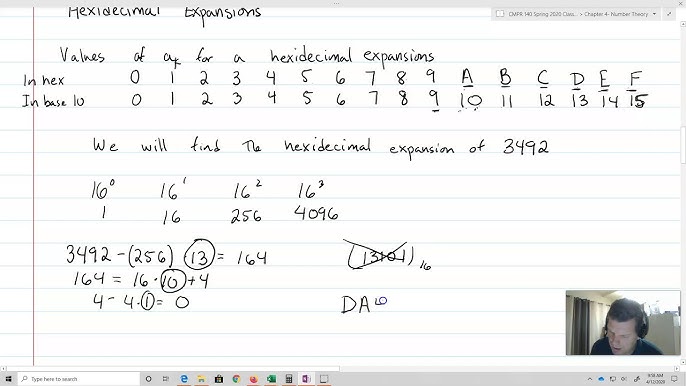 Hexidecimal Expansions
CMPR 140 Spring 2020 Class... > Chapter 4- Number Theory
Values of aₖ for a hexidecimal expansions
In hex 0 1 2 3 4 5 6 7 8 9 A B C D E F
In base 10 0 1 2 3 4 5 6 7 8 9 10 11 12 13 14 15
We will find the hexidecimal expansion of 3492
16⁰ 16¹ 16² 16³
1 16 256 4096
3492 - (256) · 13 = 164
(13101)₁₆
164 = 16 · 10 + 4
4 - 4 · 1 = 0
DA
Type here to search
9:18 AM
4/12/2020